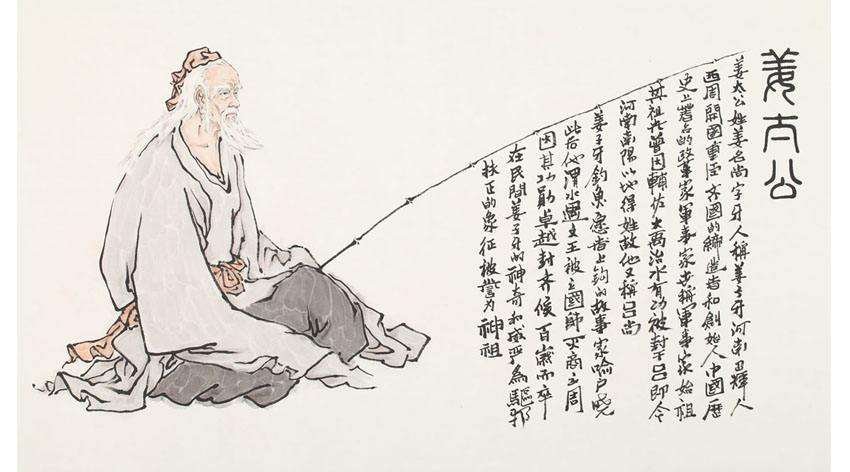 姜太公
姜太公姓姜名尚字牙人稱姜子牙河南卫輝人
西周開國重臣齐國的締造者和創始人中國歷
史上著名的政事家軍事家世稱軍事家始祖
其祖先曾因輔佐大禹治水有功被封于吕即今
河南南陽以地得姓故他又稱吕尚
姜子牙釣魚愿者上鈎的故事家喻户晓
此后他渭水遇文王被立國師灭商立周
因其功勋卓越封齐侯百歲而卒
在民間姜子牙的神奇和威严為驅邪
扶正的象征被誉为神祖